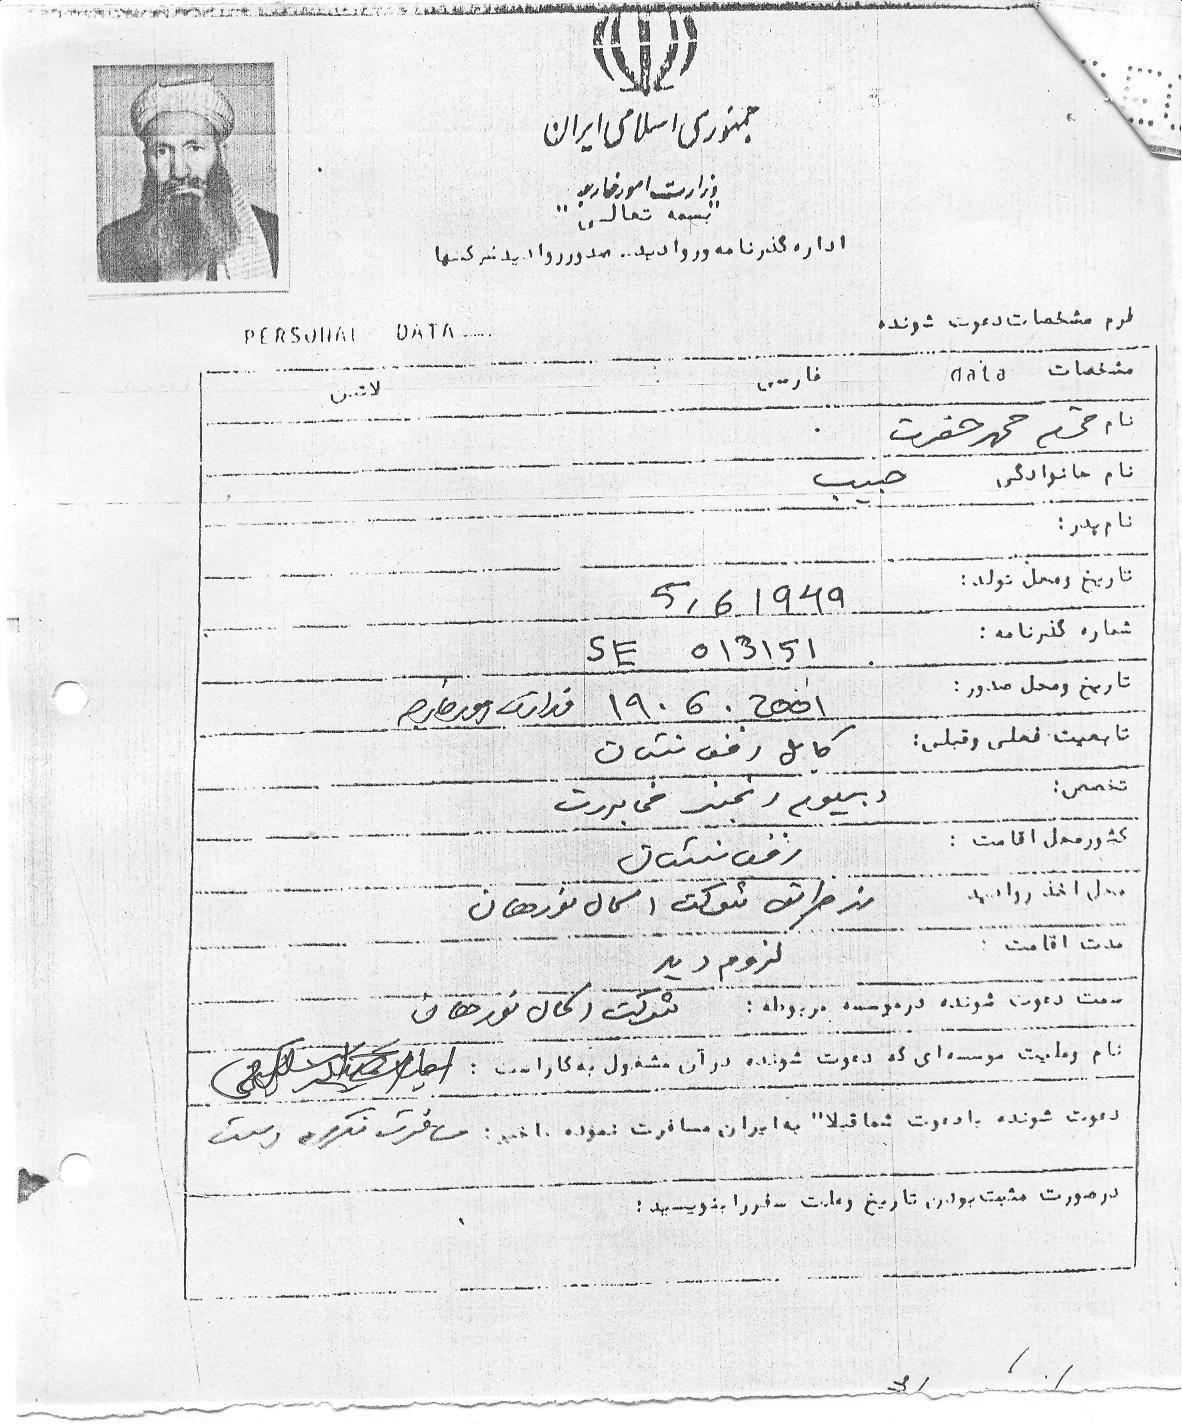 جمهوری اسلامی ایران
وزارت امور خارجه
"بسمه تعالی"
اداره گذرنامه و روادید.. صدور روادید شرکتها
PERSONAL DATA.....
فرم مشخصات دعوت شونده
مشخصات data فارسی لاتین
نام محترم محمد حضرت
نام خانوادگی حبیب
نام پدر:
تاریخ و محل تولد: 5,6 1949
شماره گذرنامه: SE 013151
تاریخ و محل صدور: 19.6.2001 وزارت امور خارجه
تابعیت فعلی و قبلی: کابل افغانستان
تخصص: دیپلوم انجنیر مخابرات
کشور محل اقامت: افغانستان
محل اخذ روادید از طریق شرکت اکمال نورهان
مدت اقامت: لزوم دید
سمت دعوت شونده در موسسه مربوطه: شرکت اکمال نورهان
نام و ملیت موسسه‌ای که دعوت شونده در آن مشغول به کار است:
دعوت شونده با دعوت شما قبلا" به ایران مسافرت نموده یا خیر: مسافرت نکرده است
در صورت مثبت بودن تاریخ و علت سفر را بنویسید: